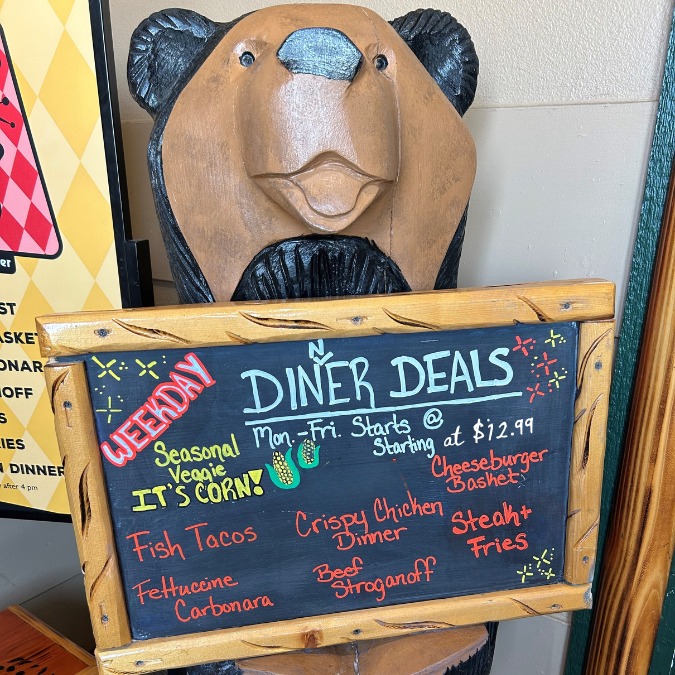 WEEKDAY
DINER DEALS
N
Mon.-Fri. Starts @
Starting at $12.99
Seasonal
Veggie
IT'S CORN!
Cheeseburger
Basket
Fish Tacos
Crispy Chicken
Dinner
Steak+
Fries
Fettuccine
Carbonara
Beef
Stroganoff
er
ST
ASKET
ONAR
NOFF
S
IES
N DINNER
after 4 pm